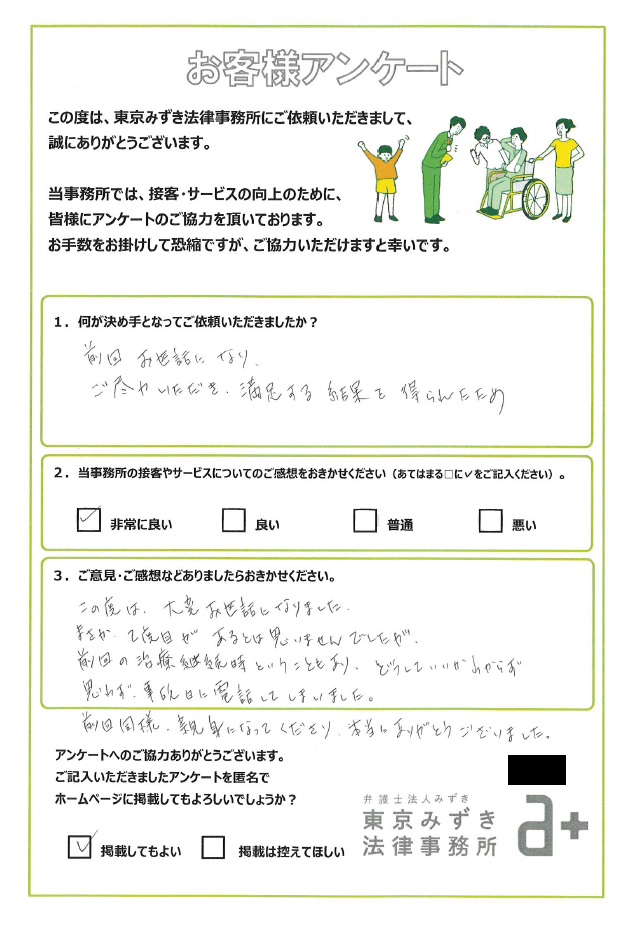 お客様アンケート
この度は、東京みずき法律事務所にご依頼いただきまして、
誠にありがとうございます。
当事務所では、接客・サービスの向上のために、
皆様にアンケートのご協力を頂いております。
お手数をお掛けして恐縮ですが、ご協力いただけますと幸いです。
1．何が決め手となってご依頼いただきましたか？
前回 お世話になり、
ご尽力いただき、満足する結果を得られたため
2．当事務所の接客やサービスについてのご感想をおきかせください（あてはまる□に✓をご記入ください）。
☑ 非常に良い □ 良い □ 普通 □ 悪い
3．ご意見・ご感想などありましたらおきかせください。
この度は、大変お世話になりました。
まさか、2度目があるとは思いませんでしたが、
前回の治療継続時ということもあり、どうしていいかわからず
思わず、事故日に電話してしまいました。
前回同様、親身になってくださり、本当にありがとうございました。
アンケートへのご協力ありがとうございます。
ご記入いただきましたアンケートを匿名で
ホームページに掲載してもよろしいでしょうか？
☑ 掲載してもよい □ 掲載は控えてほしい
弁護士法人みずき
東京みずき
法律事務所
a+